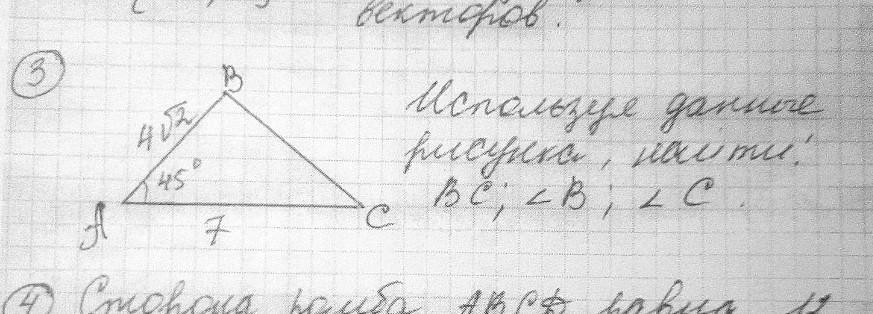 векторов.
3
B
4√2
45°
A
7
C
Используя данные
рисунка, найти:
BC; ∠B; ∠C.
4 Сторона ромба ABCD равна 12